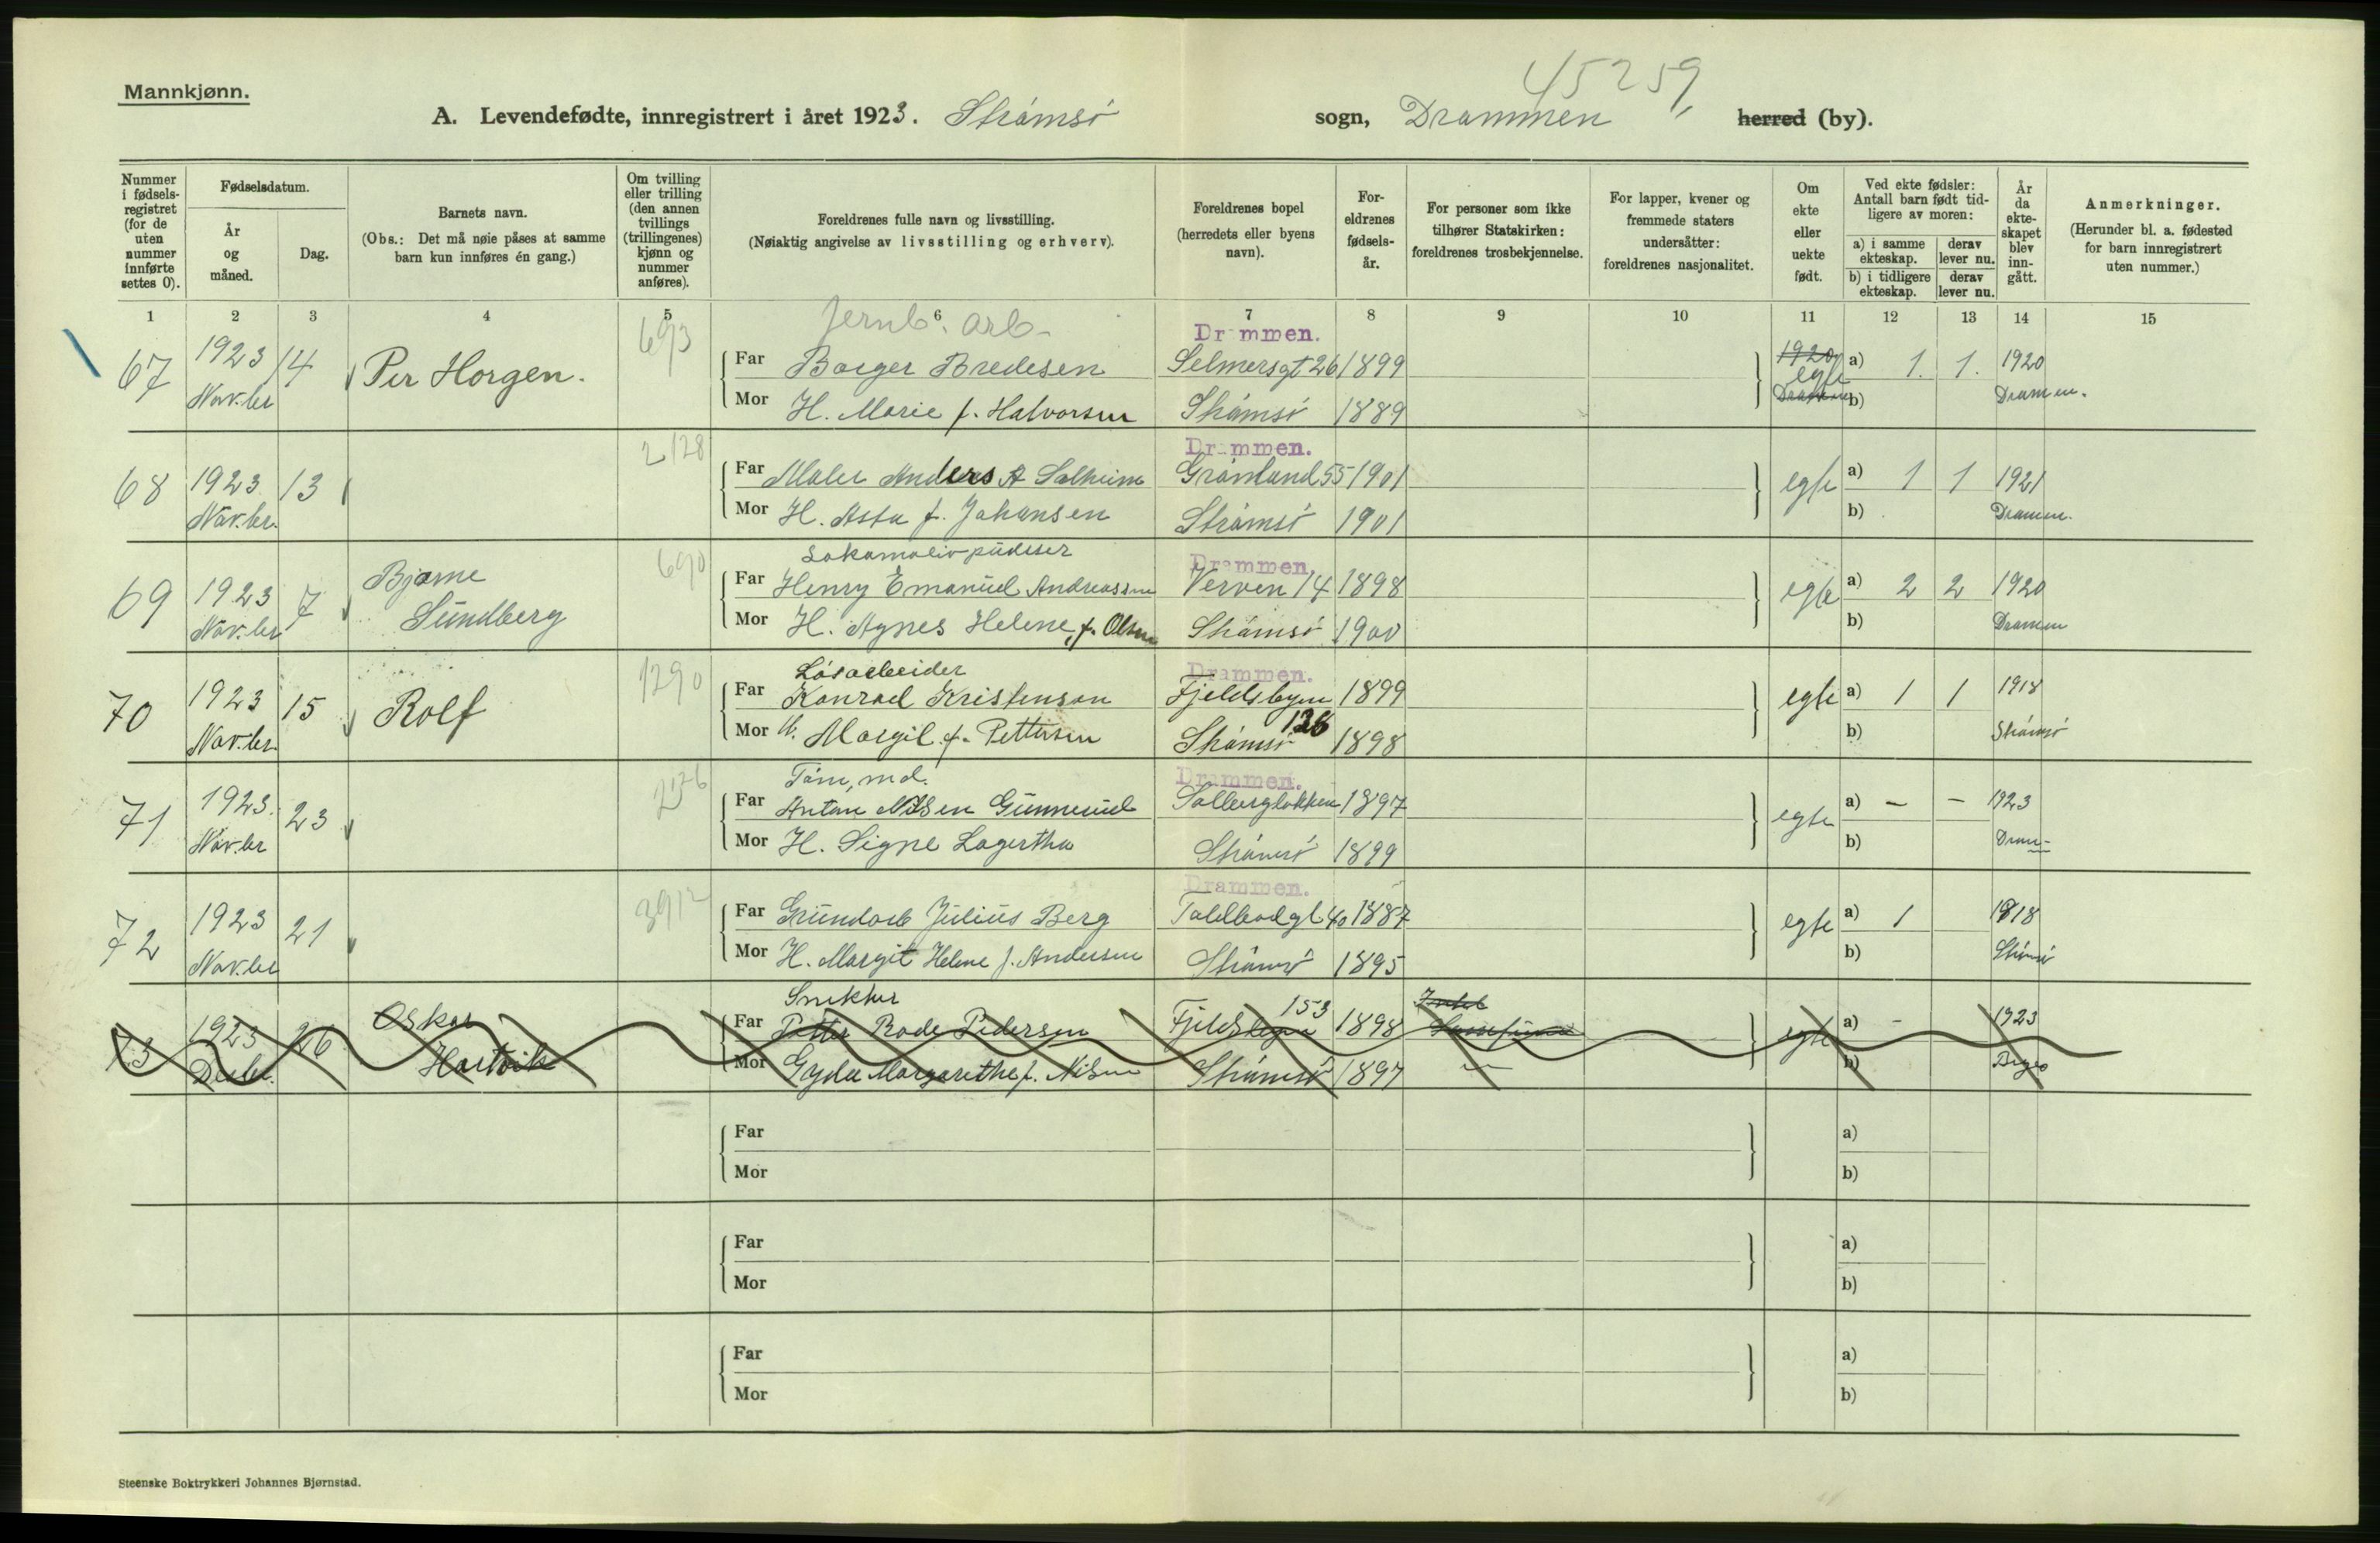 45259
Mannkjønn.
A. Levendefødte, innregistrert i året 1923. Strømsø sogn, Drammen herred (by).
Nummer i fødsels-registret (for de uten nummer innførte settes 0).
Fødselsdatum.
År og måned.
Dag.
Barnets navn.
(Obs.: Det må nøie påses at samme barn kun innføres én gang.)
Om tvilling eller trilling (den annen tvillings (trillingenes) kjønn og nummer anføres).
Foreldrenes fulle navn og livsstilling.
(Nøiaktig angivelse av livsstilling og erhverv).
Foreldrenes bopel (herredets eller byens navn).
For-eldrenes fødsels-år.
For personer som ikke tilhører Statskirken: foreldrenes trosbekjennelse.
For lapper, kvener og fremmede staters undersåtter: foreldrenes nasjonalitet.
Om ekte eller uekte født.
Ved ekte fødsler: Antall barn født tid-ligere av moren:
a) i samme ekteskap.
derav lever nu.
b) i tidligere ekteskap.
derav lever nu.
År da ekte-skapet blev inn-gått.
Anmerkninger.
(Herunder bl. a. fødested for barn innregistrert uten nummer.)
1 2 3 4 5 6 7 8 9 10 11 12 13 14 15
Jernb. arb.
693
Drammen.
67 1923 14 Per Horgen. Far Borger Bredesen Selmersgt 26 1899 1920 egte a) 1. 1. 1920
Nov.br Mor H. Marie f. Halvorsen Strømsø 1889 Drammen b) Drammen.
2128
Drammen.
68 1923 13 Far Maler Anders A Solheim Grønland 55 1901 egte a) 1 1 1921
Nov.br. Mor H. Asta f. Johansen Strømsø 1901 b) Drammen.
690
Lokomotivpudser
Drammen.
69 1923 7 Bjarne Far Henry Emanuel Andreassen Verven 14 1898 egte a) 2 2 1920
Nov.br Sundberg Mor H. Agnes Helene, f. Olsen Strømsø 1900 b) Drammen
1290
Løsarbeider
Drammen.
70 1923 15 Rolf Far Konrad Kristensen Fjeldsbyen 1899 egte a) 1 1 1918
126
Nov.br. Mor H. Margit f. Pettersen Strømsø 1898 b) Strømsø
Tøm, md.
Drammen.
71 1923. 23 Far Anton Nilsen Gunnerud Solbergløkken 1897 egte a) — — 1923
Nov.br Mor H. Signe Lagertha Strømsø 1899 b) Dram-
3912
Drammen.
72 1923 21 Far Grundarb Julius Berg Toldbodgt 40 1887 egte a) 1 1918
Nov.br Mor H. Margit Helene f. Andersen Strømsø 1895 b) Strømsø
Snekker
153
73 1923 26 Oskar Far Petter Rode Pedersen Fjeldsbyen 1898 egte a) - 1923
Desbr. Hartvik Mor Gyda Margarethe f. Nilsen Strømsø 1897 — b)
Far a)
Mor b)
Far a)
Mor b)
Far a)
Mor b)
Steenske Boktrykkeri Johannes Bjørnstad.